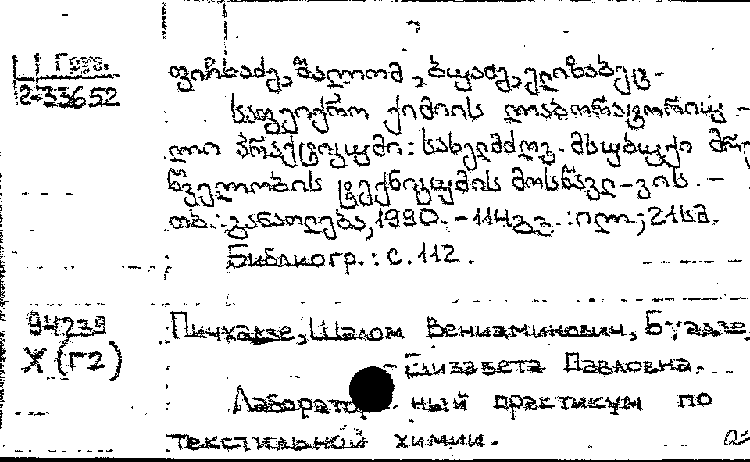 Груз.
2-33652
ფიჩხაძე, შალომ, ბუაძე, ელიზაბეტ.
საფეიქრო ქიმიის ლაბორატორიუ-
ლი პრაქტიკუმი: სახელმძღვ. მსუბუქი მრე
წველობის ტექნიკუმის მოსწავლ-ვის. -
თბ.: განათლება, 1990. - 114 გვ.: ილ.; 21 სმ.
Библиогр.: с. 112.
94239
Х (Г2)
Пичхадзе, Шалом Вениаминович, Буадзе,
Елизавета Павловна.
Лаборатор ный практикум по
текстильной химии.